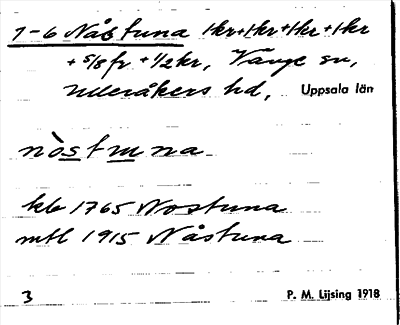 1-6 Nåstuna 1kr+1kr+1kr+1kr
+5/8fr+1/2kr, Vänge sn,
Ulleråkers hd, Uppsala län
nòstuna
kb 1765 Nostuna
mtl 1915 Nåstuna
3 P. M. Lijsing 1918